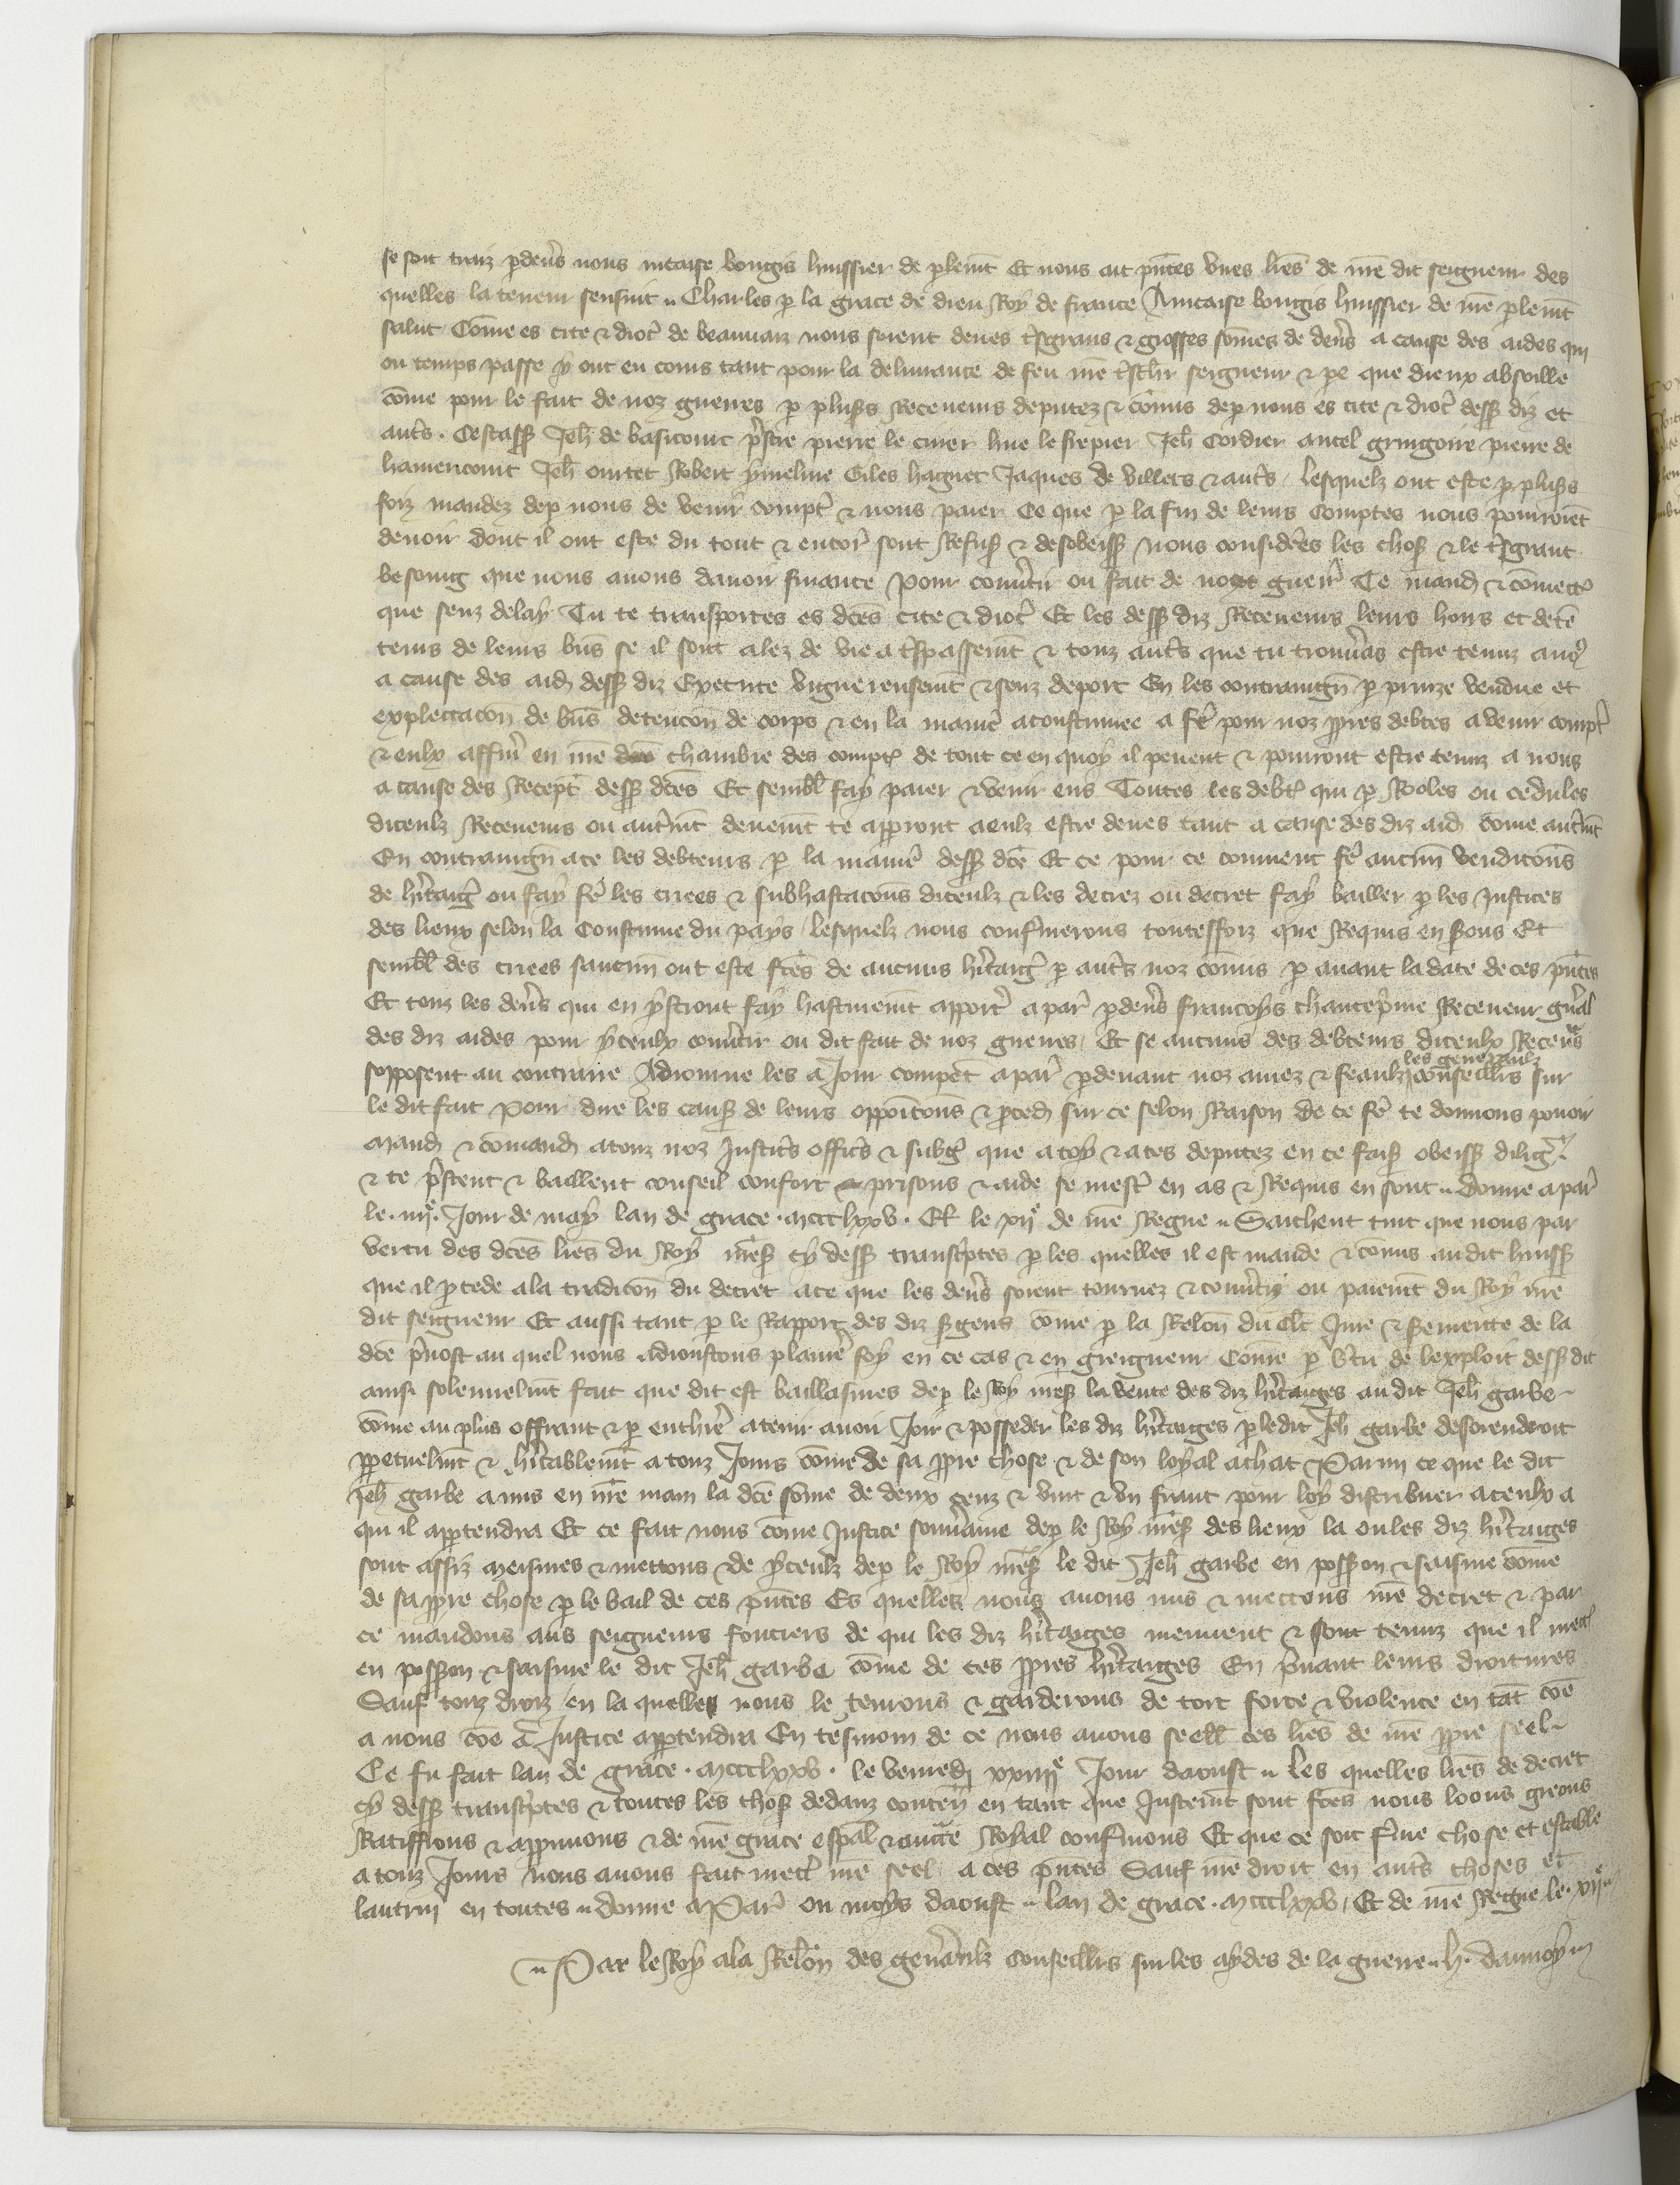 se soit traiz pdevs nous nicaise bougis huissier de plemt Et nous ait pntes unes lres de nre dit seigneur des
quelles la teneur sensuit Charles p la grace de dieu Roy de france A nicaise bougis huissier de nre plemt
salut Come es cite & dioc de beauvaiz nous soient deues tsgrans & grosses somes de devs a cause des aides qui
ou temps passe y ont eu cours tant pour la delivrance de feu nre tschr seigneur & pe que dieux absoille
come pour le fait de noz guerres p plusrs Receveurs deputez & comis dep nous es cite & dioc dessus diz et
auts . Cestassr Jeh de basicourt pstre pierre le cuier hue le frepier Jeh Cordier ancel gringoire pierre de
hamencourt Jeh ourtet Robert ymeline Giles haguet Jaques de villers & auts . lesquelz ont este p plusrs
foiz mandez dep nous de venir compt & nous paier Ce que p la fin de leurs comptes nous pourroiet
devoir dont il ont este du tout & encor sont Refus & desobeiss Nous considres les chos & le tsgrant
besoing que nous avons davoir finance Pour convtir ou fait de noz guerr Te mand & comett
que senz delay Tu te transportes es dces cite & dioc Et les dess diz Receveurs leurs hoirs et dete
teurs de leurs bns se il sont alez de vie a tspassemt & touz auts que tu trouvas estre tenuz a nos
a cause des aid dess diz Execute viguereusemt & senz deport En les contraingn p prinze vendue et
explectacon de bns detencon de corps & en la manie acoustumee a fe pour noz ppres debtes a venir compt
& eulx affin en nre chambre des compt de tout ce en quoy il pevent & pourront estre tenuz a nous
a cause des Recept dess dces Et sembl fay paier & venir ens Toutes les debt qui p Roles ou cedules
diceulz Receveurs ou autmt deuemt te apperront a eulz estre deues tant a cause des diz aid come autmt
En contraingn a ce les debteurs p la manie dess dce Et ce pour ce convient fe aucun vendicons
de hitaig ou fay fe les criees & subhastacons diceulz & les decrez ou decret fay bailler p les Justices
des lieux selon la Coustume du pays lesquelz nous confmerons toutesfoiz que Requis en serons Et
sembl des criees saucun ont este fces de aucuns hitaig p auts noz comis p avant la date de ces pntes
Et touz les devs qui en ystront fay hastivemt apport a par pdevs francoys chantepme Receveur gnal
des diz aides pour yceulx convtir ou dit fait de noz guerres . Et se aucuns des debteurs diceulx Recevrs
les generaulz
sopposent au contraire Adiourne les a Jour compet a par pdevant noz amez & feaulz conseillrs sur
le dit fait Pour dire les caus de leurs oppoitons & pced sur ce selon Raison De ce fe te donnons povoir
Mand & comand a touz noz Justics offics & subg que a toy & a tes deputez en ce fais obeiss dilig
& te pstent & baillent conseil confort prisons & aide se mest en as & Requis en sont donne a par
le . iiie . Jour de may lan de grace . mccclxxv . Et le xiie de nre Regne Saichent tuit que nous par
vertu des dces lres du Roy nres cy dess transciptes p les quelles il est mande & comis au dit huiss
que il pcede a la tradicon du decret a ce que les devs soient tournez & convtiz ou paiemt du Roy nre
dit seigneur Et aussi tant p le Rapport des diz sgens come p la Relon du clc Jure & sermente de la
dce pvoste au quel nous adioustons plaine foy en ce cas & en greigneur Come p vtu de lexploit dess dit
ainsi solennelmt fait que dit est baillasmes dep le Roy nres la vente des diz hitaiges au dit Jeh garbe
come au plus offrant & p encher a tenir avoir Joir & posseder les diz hitaiges p ledit Jeh garbe desorendroit
ppetuelmt & hitablemt a touz Jours come de sa ppre chose & de son loyal achat Parmi ce que le dit
Jeh garbe a mis en nre main la dce some de deux cenz & vint & un franc pour loy distribuer a ceulx a
qui il apptendra Et ce fait nous come Justice souvaine dep le Roy nres des lieux la ou les diz hitaiges
sont assiz Meismes & mettons & de yceulz dep le Roy nres le dit Jeh garbe en posson & saisine come
de sa ppre chose p le bail de ces pntes Es quelles nous avons mis & mettons nre decret & par
ce mandons aus seigneurs fonciers de qui les diz hitaiges meuvent & sont tenuz que il mett
en posson & saisine le dit Jeh garbe come de ces ppres hitaiges En pnant leurs droitures
Sauf touz droiz en la quelle nous le tenrons & garderons de tort force & violence en tat coe
a nous coe a Justice apptendra En tesmoin de ce nous avons seell ces lres de nre ppre seel
Ce fu fait lan de grace . mccclxxv . le venredi xxiiiie Jour daoust Les quelles lres de decret
cy dess transciptes & toutes les chos dedanz conten en tant que Justemt sont fces nous loons greons
Ratiffions & approuvons & de nre grace espal & aucte Royal confmons Et que ce soit fme chose et estable
a touz Jours Nous avons fait mett nre seel a ces pntes Sauf nre droit en auts choses et
lautruy en toutes donne a Par ou moys daoust lan de grace . mccclxxv . Et de nre Regne le . xiie
Par le Roy a la Relon des genaulx conseillrs sur les aydes de la guerre . h . daunoy